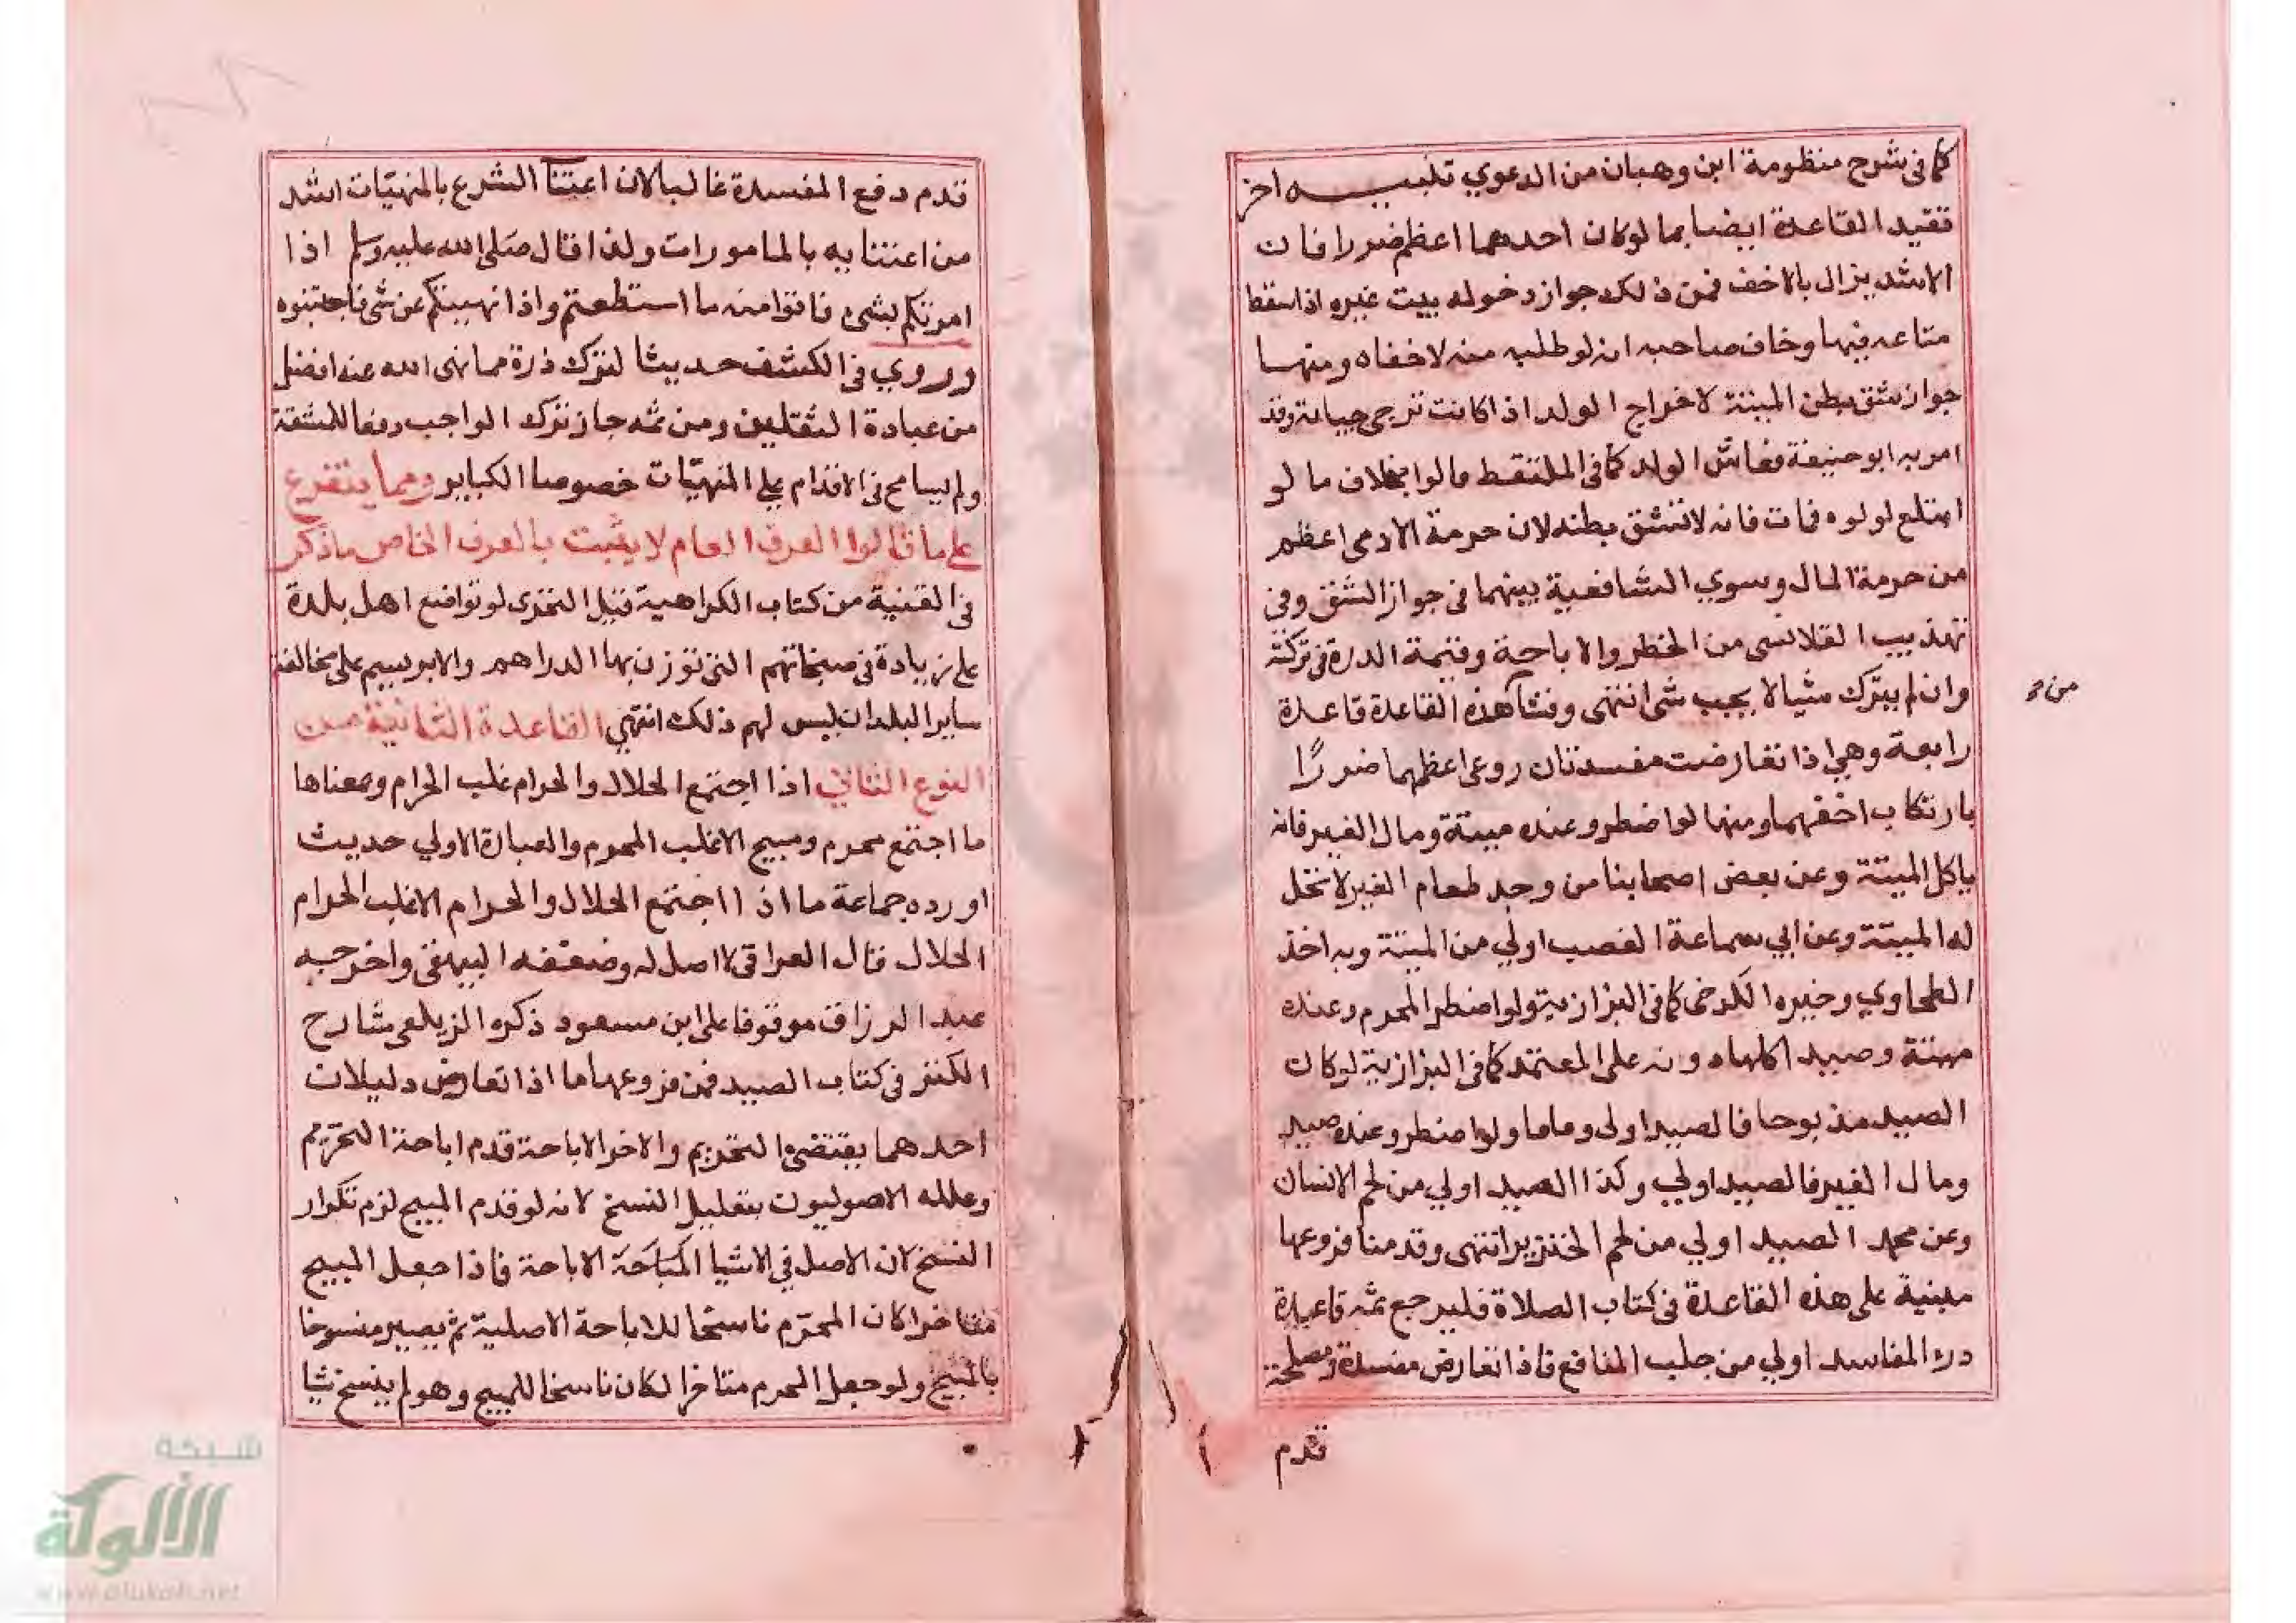 كما في شرح منظومة ابن وهبان من الدعوي تنبيه اخر
تقيد القاعدة ايضا بما لو كان احدهما اعظم ضررا فان
الاشد يزال بالاخف فمن ذلك جواز دخوله بيت غيره اذا سقط
متاعه فيها وخاف صاحبه انه لو طلبه منه لاخفاه ومنها
جواز شق بطن الميتة لاخراج الولد اذا كانت ترجي حياته وقد
امر به ابو حنيفة فعاش الولد كما في الملتقط قالوا بخلاف ما لو
ابتلع لولوه فمات فانه لا تشق بطنه لان حرمة الادمي اعظم
من حرمة المال وسوي الشافعية بينهما في جواز الشق وفي
تهذيب القلانسي من الحظر والاباحة وقيمة الدرة في تركته
وان لم يترك شيا لا يجب شي انتهى ونشا هذه القاعدة قاعدة
من م
رابعة وهي اذا تعارضت مفسدتان روعي اعظمهما ضررًا
بارتكاب اخفهما ومنها لو اضطر وعنده ميتة ومال الغير فانه
ياكل الميتة وعن بعض اصحابنا من وجد طعام الغير لا تحل
له الميتة وعن ابي سماعة الغصب اولي من الميتة وبه اخذ
الطحاوي وخيره الكرخي كما في البزازية ولو اضطر المحرم وعنده
ميتة وصيد اكلها دونه على المعتمد كما في البزازية لو كان
الصيد مذبوحا فالصيد اولى وماما ولو اضطر وعنده صيد
ومال الغير فالصيد اولي وكذا الصيد اولي من لحم الانسان
وعن محمد الصيد اولي من لحم الخنزير انتهى وقدمنا فروعها
مبنية على هذه القاعدة في كتاب الصلاة فليرجع ثمه قاعدة
درء المفاسد اولي من جلب المنافع فاذا تعارض مفسدة ومصلحة
قدم
قدم دفع المفسدة غالبا لان اعتنآ الشرع بالمنهيّات اشد
من اعتنايه بالمامورات ولذا قال صلى الله عليه وسلم اذا
امرتكم بشيء فاتوا منه ما استطعتم واذا نهيتكم عن شي فاجتنبوه
وروي في الكشف حديثا لترك ذرة مما نهى الله عنه افضل
من عبادة الثقلين ومن ثمه جاز ترك الواجب دفعا للمشقة
ولم يسامح في الاقدام علي المنهيّات خصوصا الكباير ومما يتفرع
علي ما قالوا العرف العام لا يثبت بالعرف الخاص ما ذكر
في القنية من كتاب الكراهية قبل التحري لو تواضع اهل بلدة
علي زيادة في صنجاتهم التي توزن بها الدراهم والابريسم على مخالفة
ساير البلدان ليس لهم ذلك انتهي القاعدة الثانية من
النوع الثاني اذا اجتمع الحلال والحرام غلب الحرام ومعناها
ما اجتمع محرم ومبيح الا غلب المحرم والعبارة الاولي حديث
اورده جماعة ما اذا اجتمع الحلال والحرام الا غلب الحرام
الحلال قال العراقي لا اصل له وضعفه البيهقي واخرجه
عبد الرزاق موقوفا على ابن مسعود ذكره الزيلعي شارح
الكنز في كتاب الصيد فمن فروعها ما اذا تعارض دليلان
احدهما يقتضي التحريم والاخر الاباحة قدم اباحة التحريم
وعلله الاصوليون بتقليل النسخ لانه لو قدم المبيح لزم تكرار
النسخ لان الاصل في الاشيا المبَاحَة الاباحة فاذا جعل المبيح
متاخرا كان المحرّم ناسخا للاباحة الاصلية ثم يصير منسوخا
بالمبيح ولو جعل المحرم متاخرا لكان ناسخا للمبيح وهو لم ينسخ شيا
شبكة
الألوكة
www.alukah.net